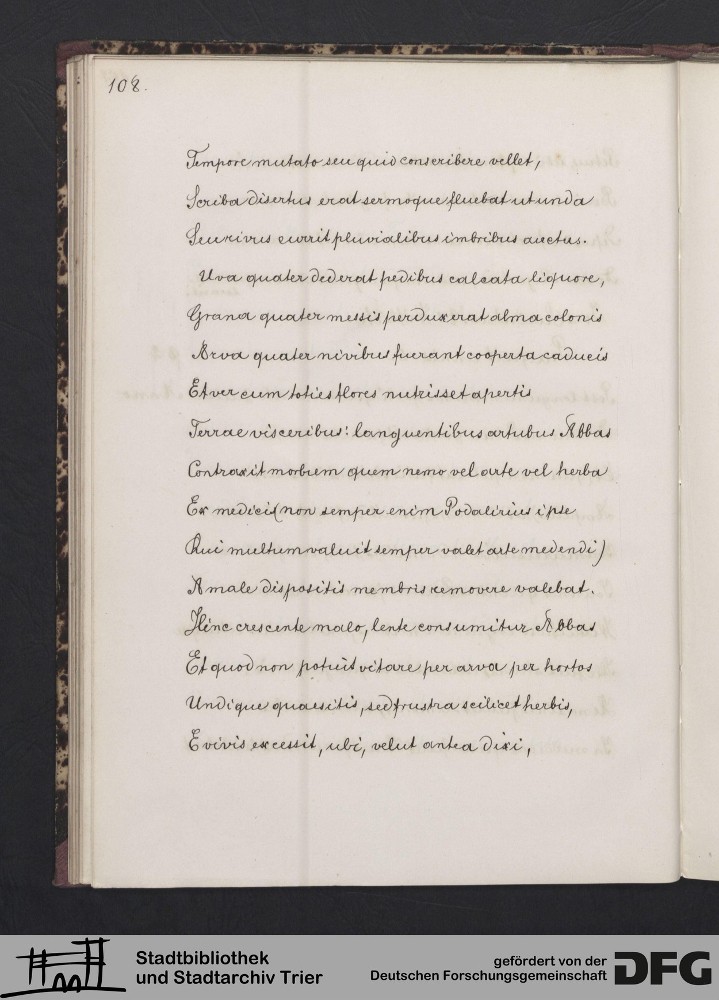 108.
Tempore mutato seu quid conscribere vellet,
Scriba disertus erat sermoque fluebat ut unda
Seu rivus currit pluvialibus imbribus auctus.
Uva quater dederat pedibus calcata liquore,
Grana quater messis perduxerat alma colonis
Arva quater nivibus fuerant cooperta caducis
Et ver cum toties flores nutrisset apertis
Terrae visceribus: languentibus artubus Abbas
Contraxit morbum quem nemo vel arte vel herba
Ex medicis (non semper enim Podalirius ipse
Qui multum valuit semper valet arte medendi)
A male dispositis membris removere valebat.
Hinc crescente malo, lente consumitur Abbas
Et quod non potuit vitare per arva per hortos
Undique quaesitis, sed frustra scilicet herbis,
E vivis excessit, ubi, velut antea dixi,
Stadtbibliothek
und Stadtarchiv Trier
gefördert von der
Deutschen Forschungsgemeinschaft
DFG